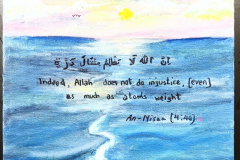 ان الله لا يظلم مثقال ذرة
Indeed, Allah does not do injustice, [even]
as much as atoms weight
An-Nisaa [4:40]